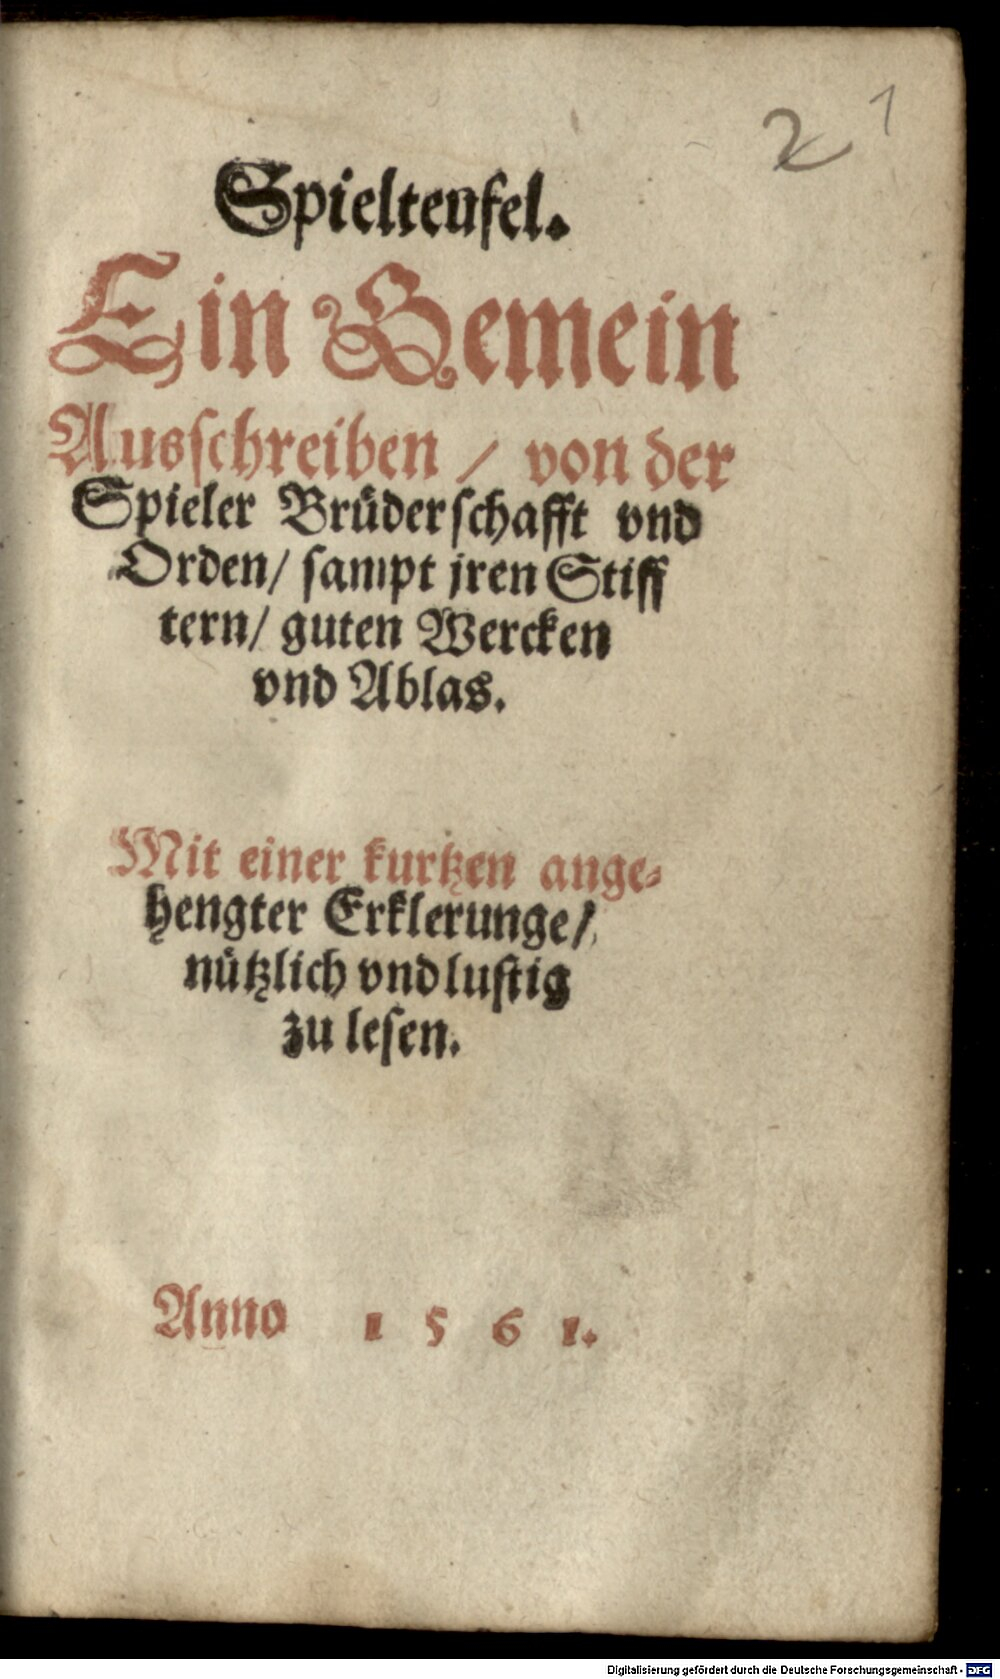 2 1
Spielteufel.
Ein Gemein
Ausschreiben / von der
Spieler Brüderschafft vnd
Orden / sampt jren Stiff
tern / guten Wercken
vnd Ablas.
Mit einer kurtzen ange-
hengter Erklerunge /
nützlich vnd lustig
zu lesen.
Anno 1 5 6 1.
Digitalisierung gefördert durch die Deutsche Forschungsgemeinschaft - DFG